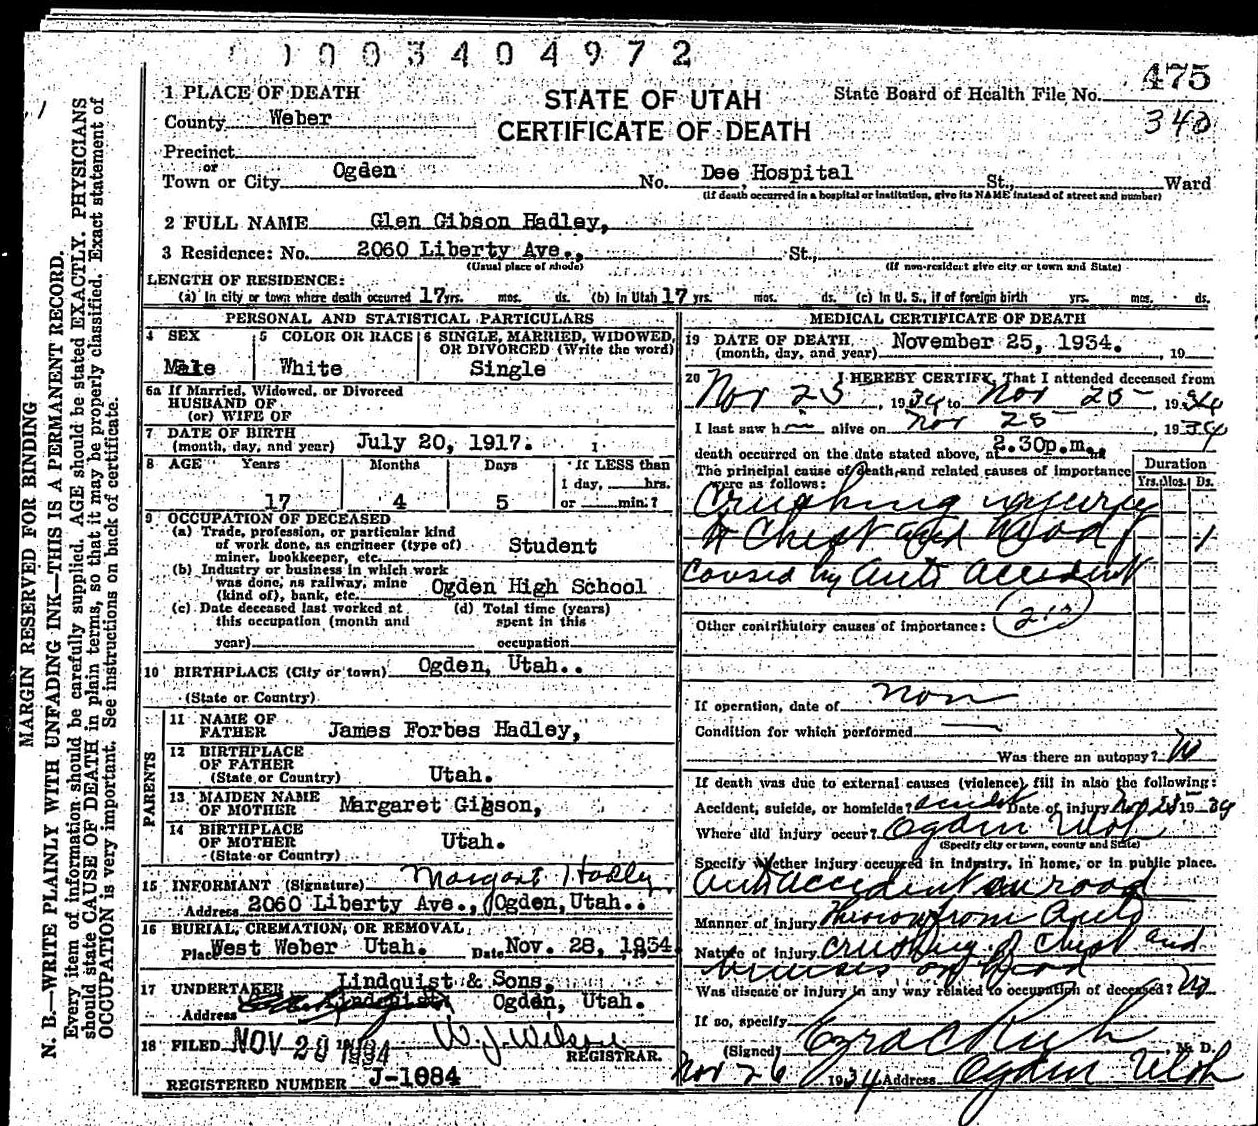 1003404972
475
340
1 PLACE OF DEATH
County Weber
STATE OF UTAH
CERTIFICATE OF DEATH
State Board of Health File No.
Precinct
or
Town or City Ogden No. Dee Hospital St., Ward
(If death occurred in a hospital or institution, give its NAME instead of street and number)
2 FULL NAME Glen Gibson Hadley,
3 Residence: No. 2060 Liberty Ave., St.,
(Usual place of abode) (If non-resident give city or town and State)
LENGTH OF RESIDENCE:
(a) In city or town where death occurred 17 yrs. mos. ds. (b) In Utah 17 yrs. mos. ds. (c) In U. S., if of foreign birth yrs. mos. ds.
PERSONAL AND STATISTICAL PARTICULARS
4 SEX Male
5 COLOR OR RACE White
6 SINGLE, MARRIED, WIDOWED, OR DIVORCED (Write the word) Single
6a If Married, Widowed, or Divorced
HUSBAND OF
(or) WIFE OF
7 DATE OF BIRTH
(month, day, and year) July 20, 1917.
8 AGE Years Months Days If LESS than
1 day, hrs.
17 4 5 or min.?
9 OCCUPATION OF DECEASED
(a) Trade, profession, or particular kind
of work done, as engineer (type of)
miner, bookkeeper, etc. Student
(b) Industry or business in which work
was done, as railway, mine
(kind of), bank, etc. Ogden High School
(c) Date deceased last worked at
this occupation (month and
year)
(d) Total time (years)
spent in this
occupation
10 BIRTHPLACE (City or town) Ogden, Utah..
(State or Country)
PARENTS
11 NAME OF
FATHER James Forbes Hadley,
12 BIRTHPLACE
OF FATHER
(State or Country) Utah.
13 MAIDEN NAME
OF MOTHER Margaret Gibson,
14 BIRTHPLACE
OF MOTHER
(State or Country) Utah.
15 INFORMANT (Signature) Margaret Hadley
Address 2060 Liberty Ave., Ogden, Utah..
16 BURIAL, CREMATION, OR REMOVAL
Place West Weber Utah. Date Nov. 28, 1934
17 UNDERTAKER Lindquist & Sons,
Address Ogden, Utah.
18 FILED NOV 28 1934 W. J. Wilson
REGISTRAR.
REGISTERED NUMBER J-1084
MEDICAL CERTIFICATE OF DEATH
19 DATE OF DEATH
(month, day, and year) November 25, 1934. , 19
20 I HEREBY CERTIFY, That I attended deceased from
Nov 25, 1934 to Nov 25 1934
I last saw him alive on Nov 25 1934
death occurred on the date stated above, at 2.30p.m.
The principal cause of death and related causes of importance
were as follows:
Duration
Yrs. Mos. Ds.
Crushing injury
to Chest and Head 1
Caused by Auto Accident
210
Other contributory causes of importance:
If operation, date of non
Condition for which performed
Was there an autopsy? No
If death was due to external causes (violence), fill in also the following:
Accident, suicide, or homicide? accident Date of injury Nov 25 1934
Where did injury occur? Ogden Utah
(Specify city or town, county and State)
Specify whether injury occurred in industry, in home, or in public place.
Auto accident on road
Manner of injury Thrown from Auto
Nature of injury crushing of Chest and
bruises on head
Was disease or injury in any way related to occupation of deceased? No
If so, specify
(Signed) Ezra C Rich M. D.
Nov 26 1934 Address Ogden Utah
MARGIN RESERVED FOR BINDING
N. B.—WRITE PLAINLY WITH UNFADING INK—THIS IS A PERMANENT RECORD.
Every item of information should be carefully supplied. AGE should be stated EXACTLY. PHYSICIANS
should state CAUSE OF DEATH in plain terms, so that it may be properly classified. Exact statement of
OCCUPATION is very important. See instructions on back of certificate.